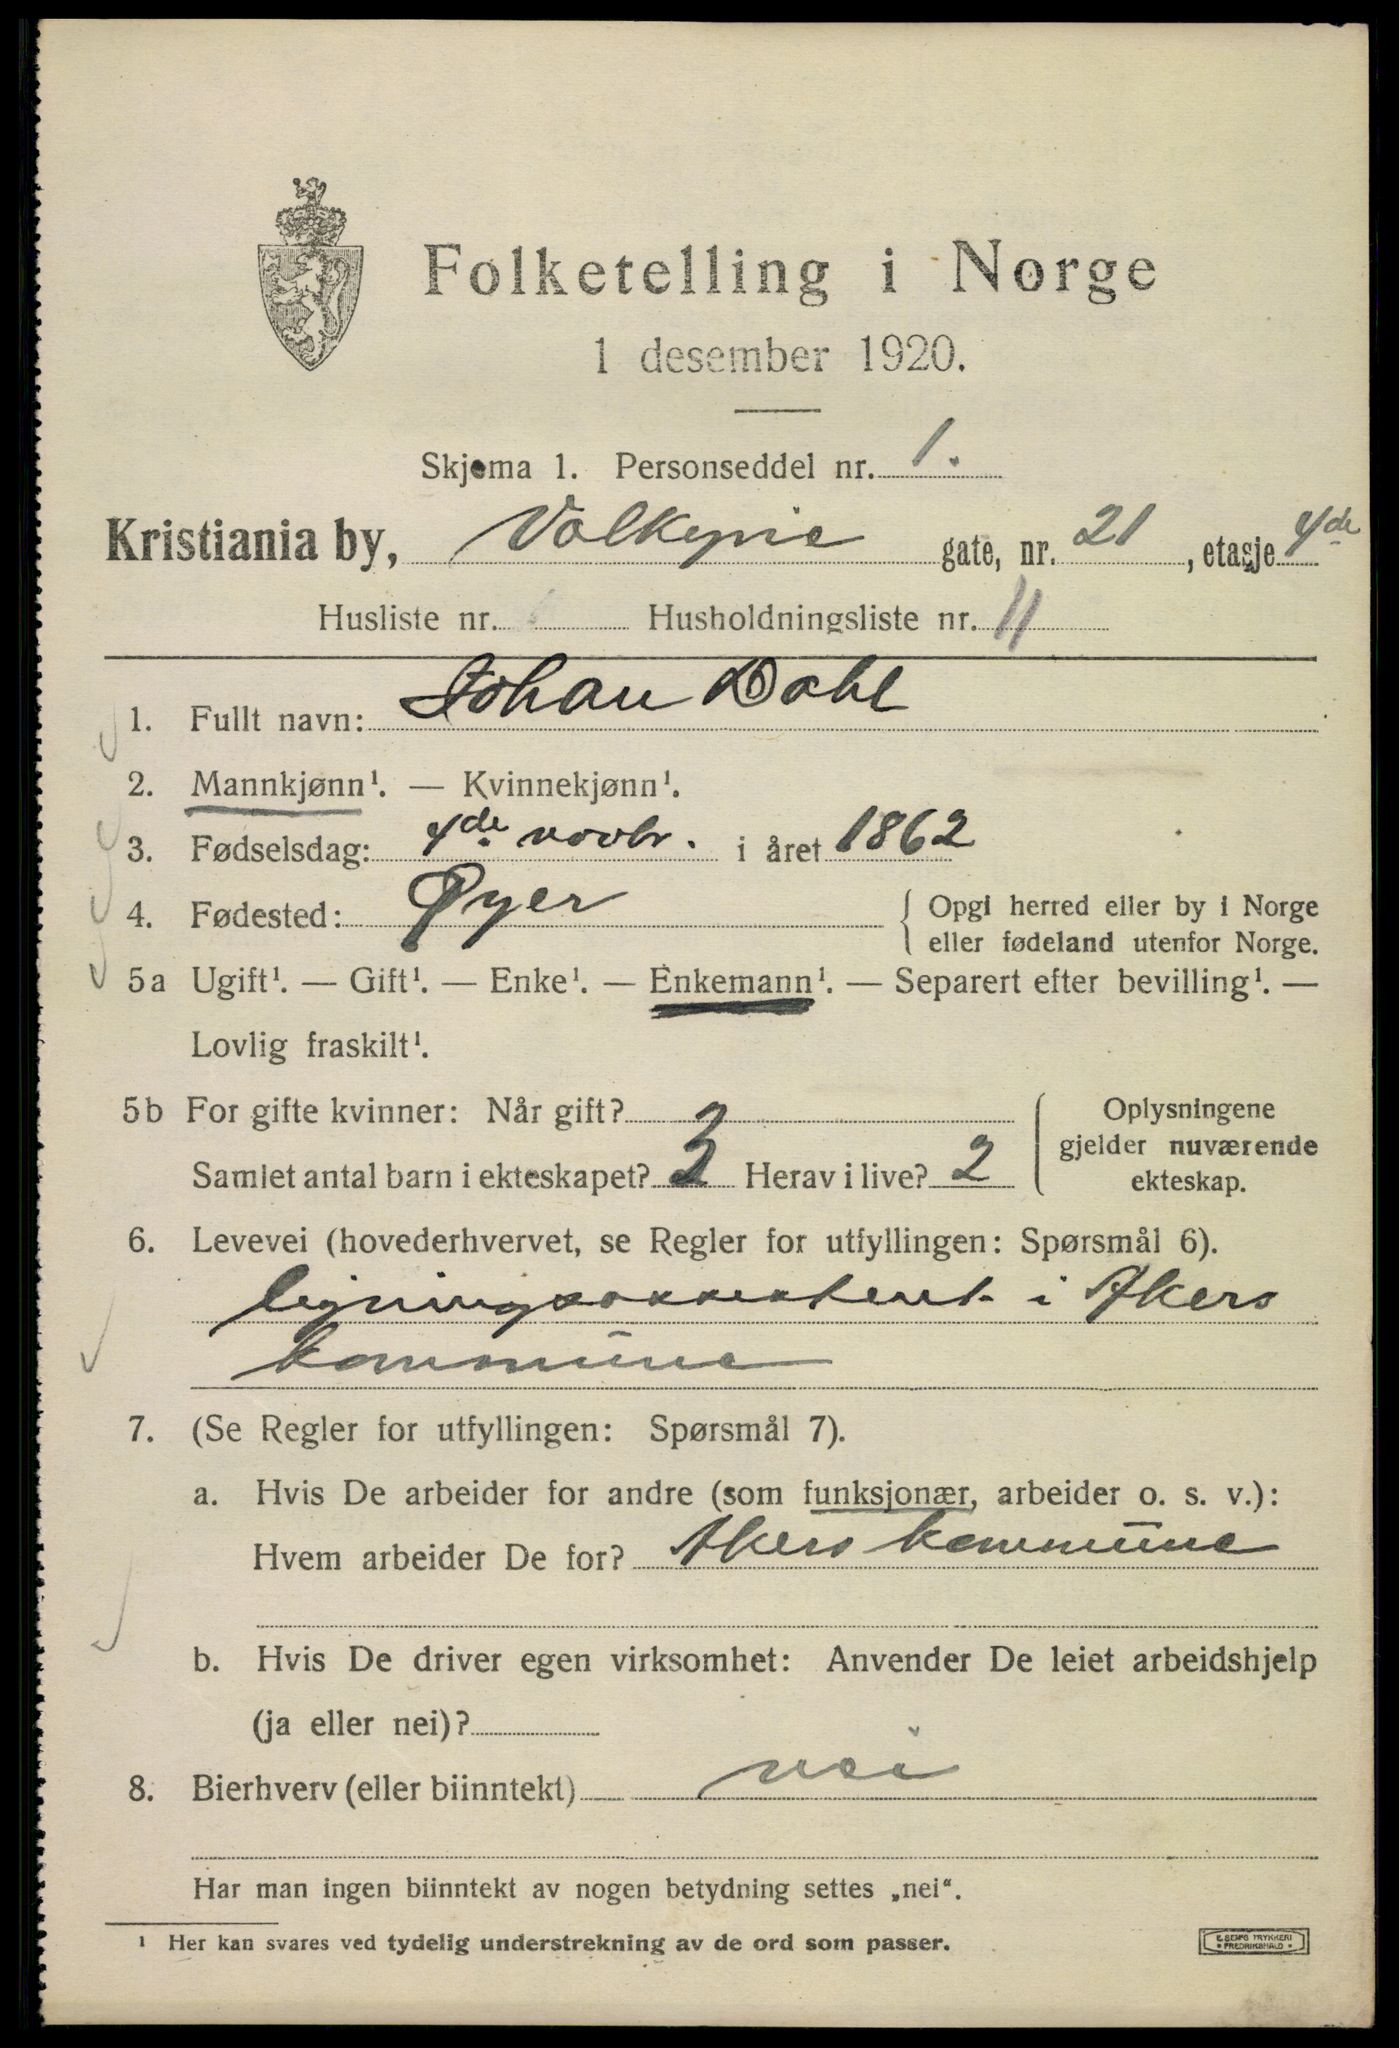 Folketelling i Norge
1 desember 1920.
Skjema 1. Personseddel nr. 1.
Kristiania by, Valkyrie gate, nr. 21, etasje 4de
Husliste nr. Husholdningsliste nr. 11
1. Fullt navn: Johan Dahl
2. Mannkjønn¹. — Kvinnekjønn¹.
3. Fødselsdag: 4de novbr. i året 1862
4. Fødested: Øyer { Opgi herred eller by i Norge
eller fødeland utenfor Norge.
5a Ugift¹. — Gift¹. — Enke¹. — Enkemann¹. — Separert efter bevilling¹. —
Lovlig fraskilt¹.
5b For gifte kvinner: Når gift?
Samlet antal barn i ekteskapet? 3 Herav i live? 2
Oplysningene
gjelder nuværende
ekteskap.
6. Levevei (hovederhvervet, se Regler for utfyllingen: Spørsmål 6).
ligningsassistent i Akers
kommune
7. (Se Regler for utfyllingen: Spørsmål 7).
a. Hvis De arbeider for andre (som funksjonær, arbeider o. s. v.):
Hvem arbeider De for? Akers kommune
b. Hvis De driver egen virksomhet: Anvender De leiet arbeidshjelp
(ja eller nei)?
8. Bierhverv (eller biinntekt) nei
Har man ingen biinntekt av nogen betydning settes „nei“.
¹ Her kan svares ved tydelig understrekning av de ord som passer.
E. SEMS TRYKKERI
• FREDRIKSHALD •